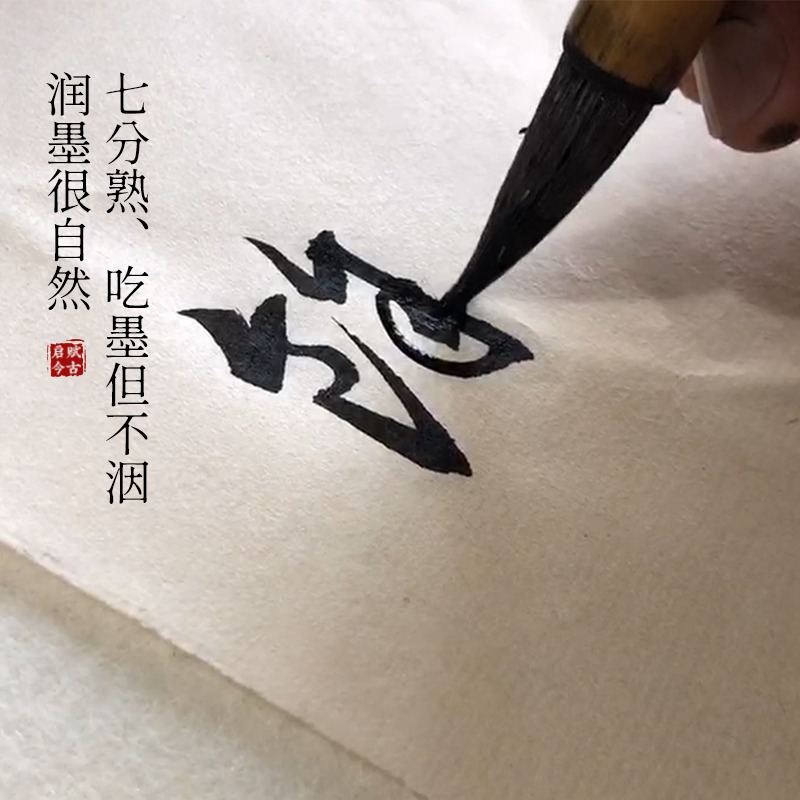 七分熟、吃墨但不洇
润墨很自然
赋古
启今